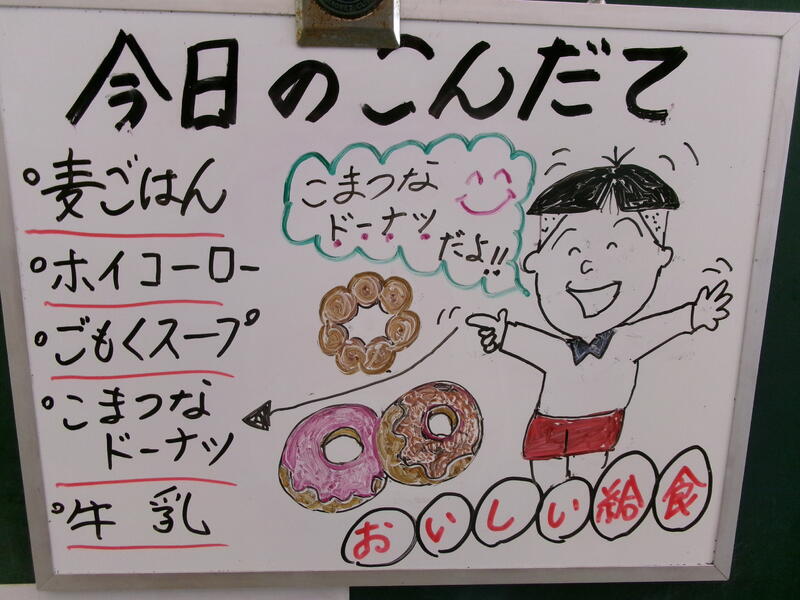 今日のこんだて
麦ごはん
ホイコーロー
ごもくスープ
こまつな
ドーナツ
牛乳
こまつな
ドーナツ
だよ!!
おいしい給食